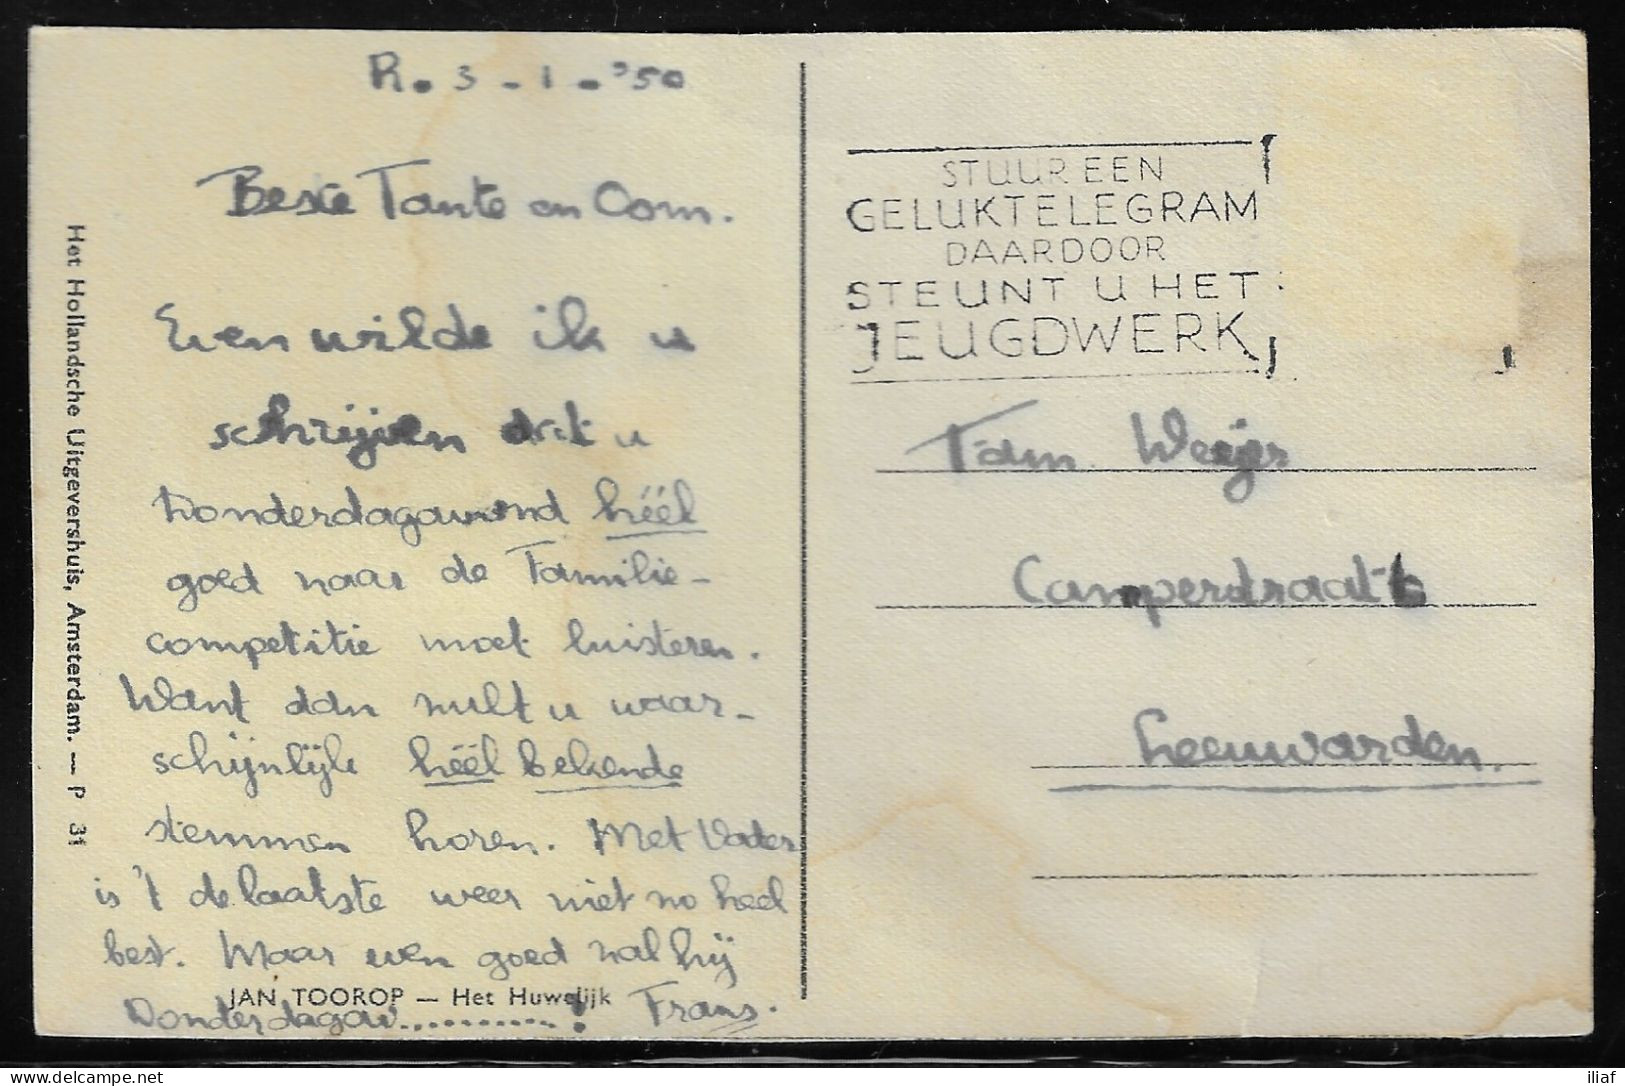 R. 3 - 1 - '50
Beste Tante en Oom.
Even wilde ik u
schrijven dat u
Donderdagavond héél
goed naar de Familie-
competitie moet luisteren.
Want dan zult u waar-
schijnlijk héél bekende
stemmen horen. Met Vader
is 't de laatste weer niet zo heel
best. Maar even goed zal hij
Donderdagav..........! Frans.
JAN TOOROP — Het Huwelijk
Het Hollandsche Uitgevershuis, Amsterdam. — P 31
STUUR EEN
GELUKTELEGRAM
DAARDOOR
STEUNT U HET
JEUGDWERK
Fam. Weijer
Camperstraat 6
Leeuwarden.
iliaf